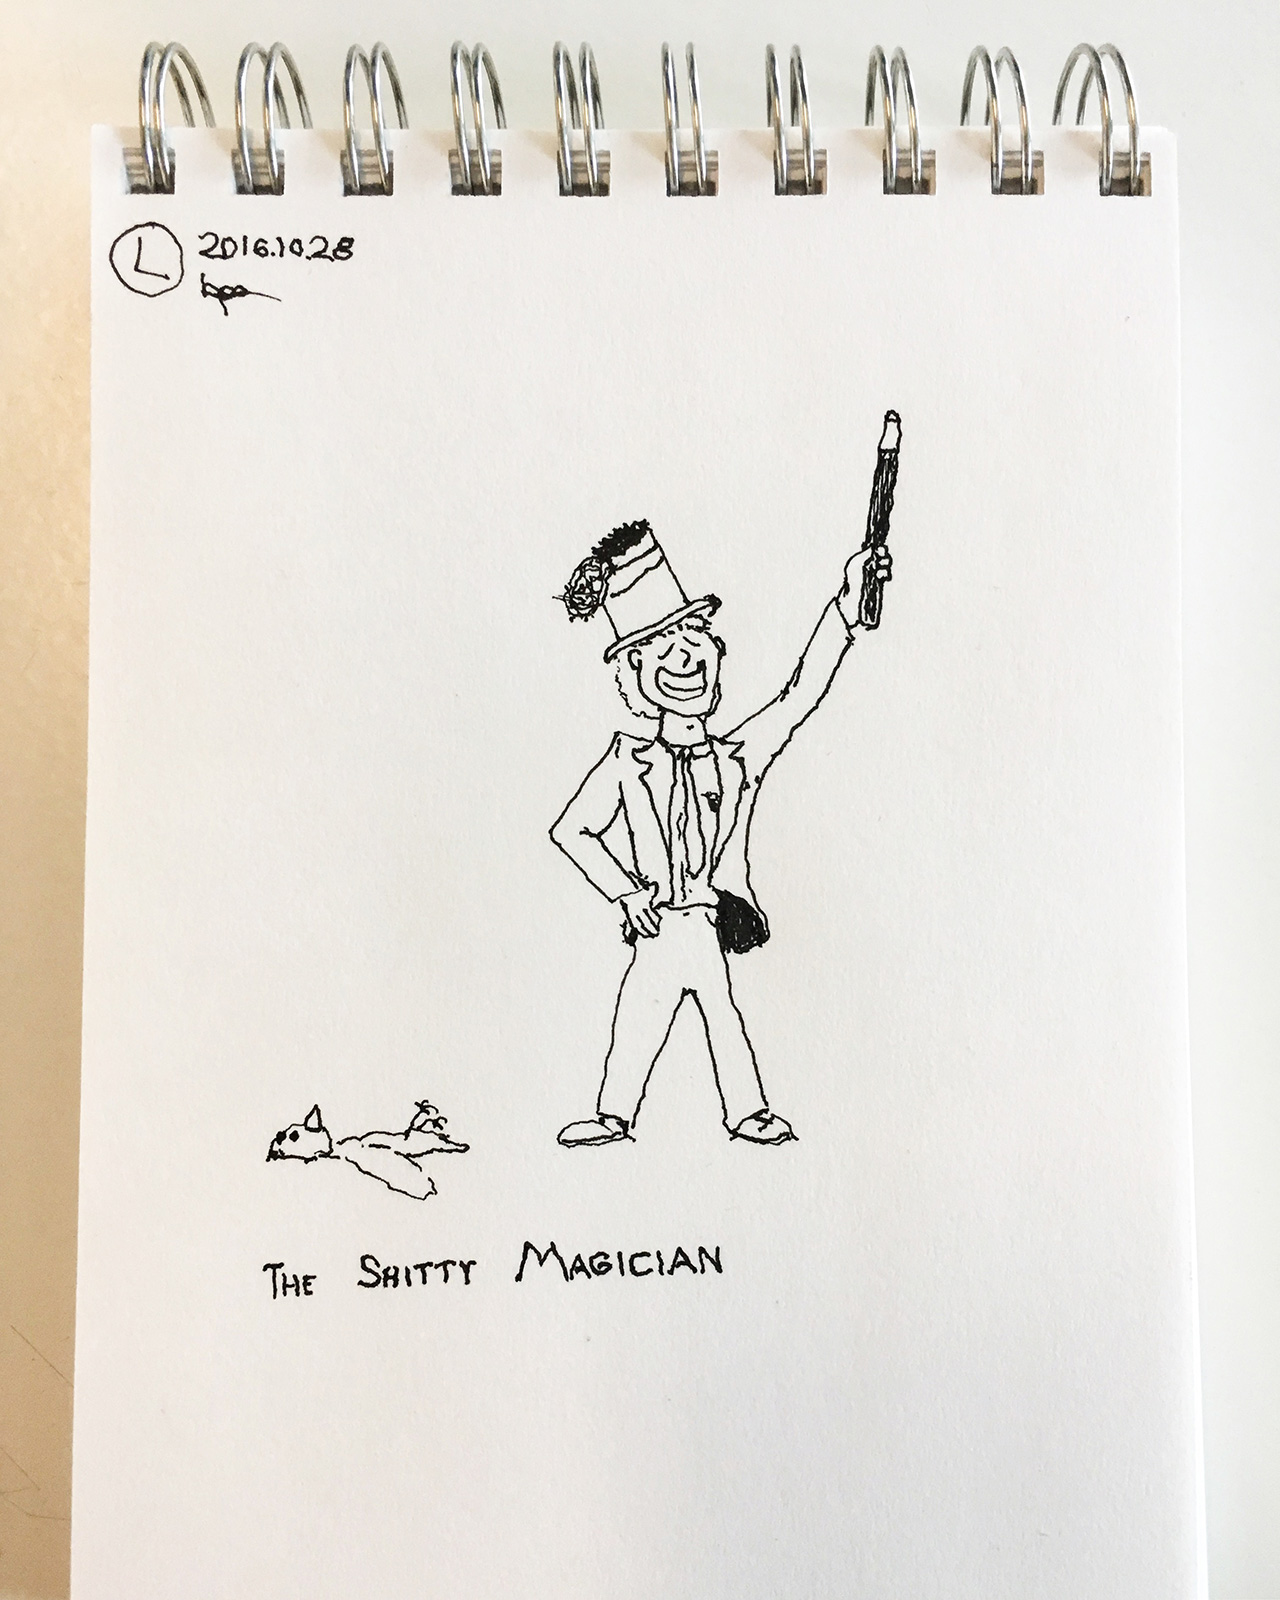 L 2016.10.28
THE SHITTY MAGICIAN